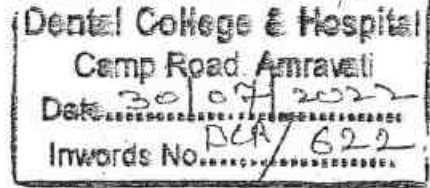 Dental College & Hospital
Camp Road Amravati
Date 30/07/2022
Inwords No. DCA/622